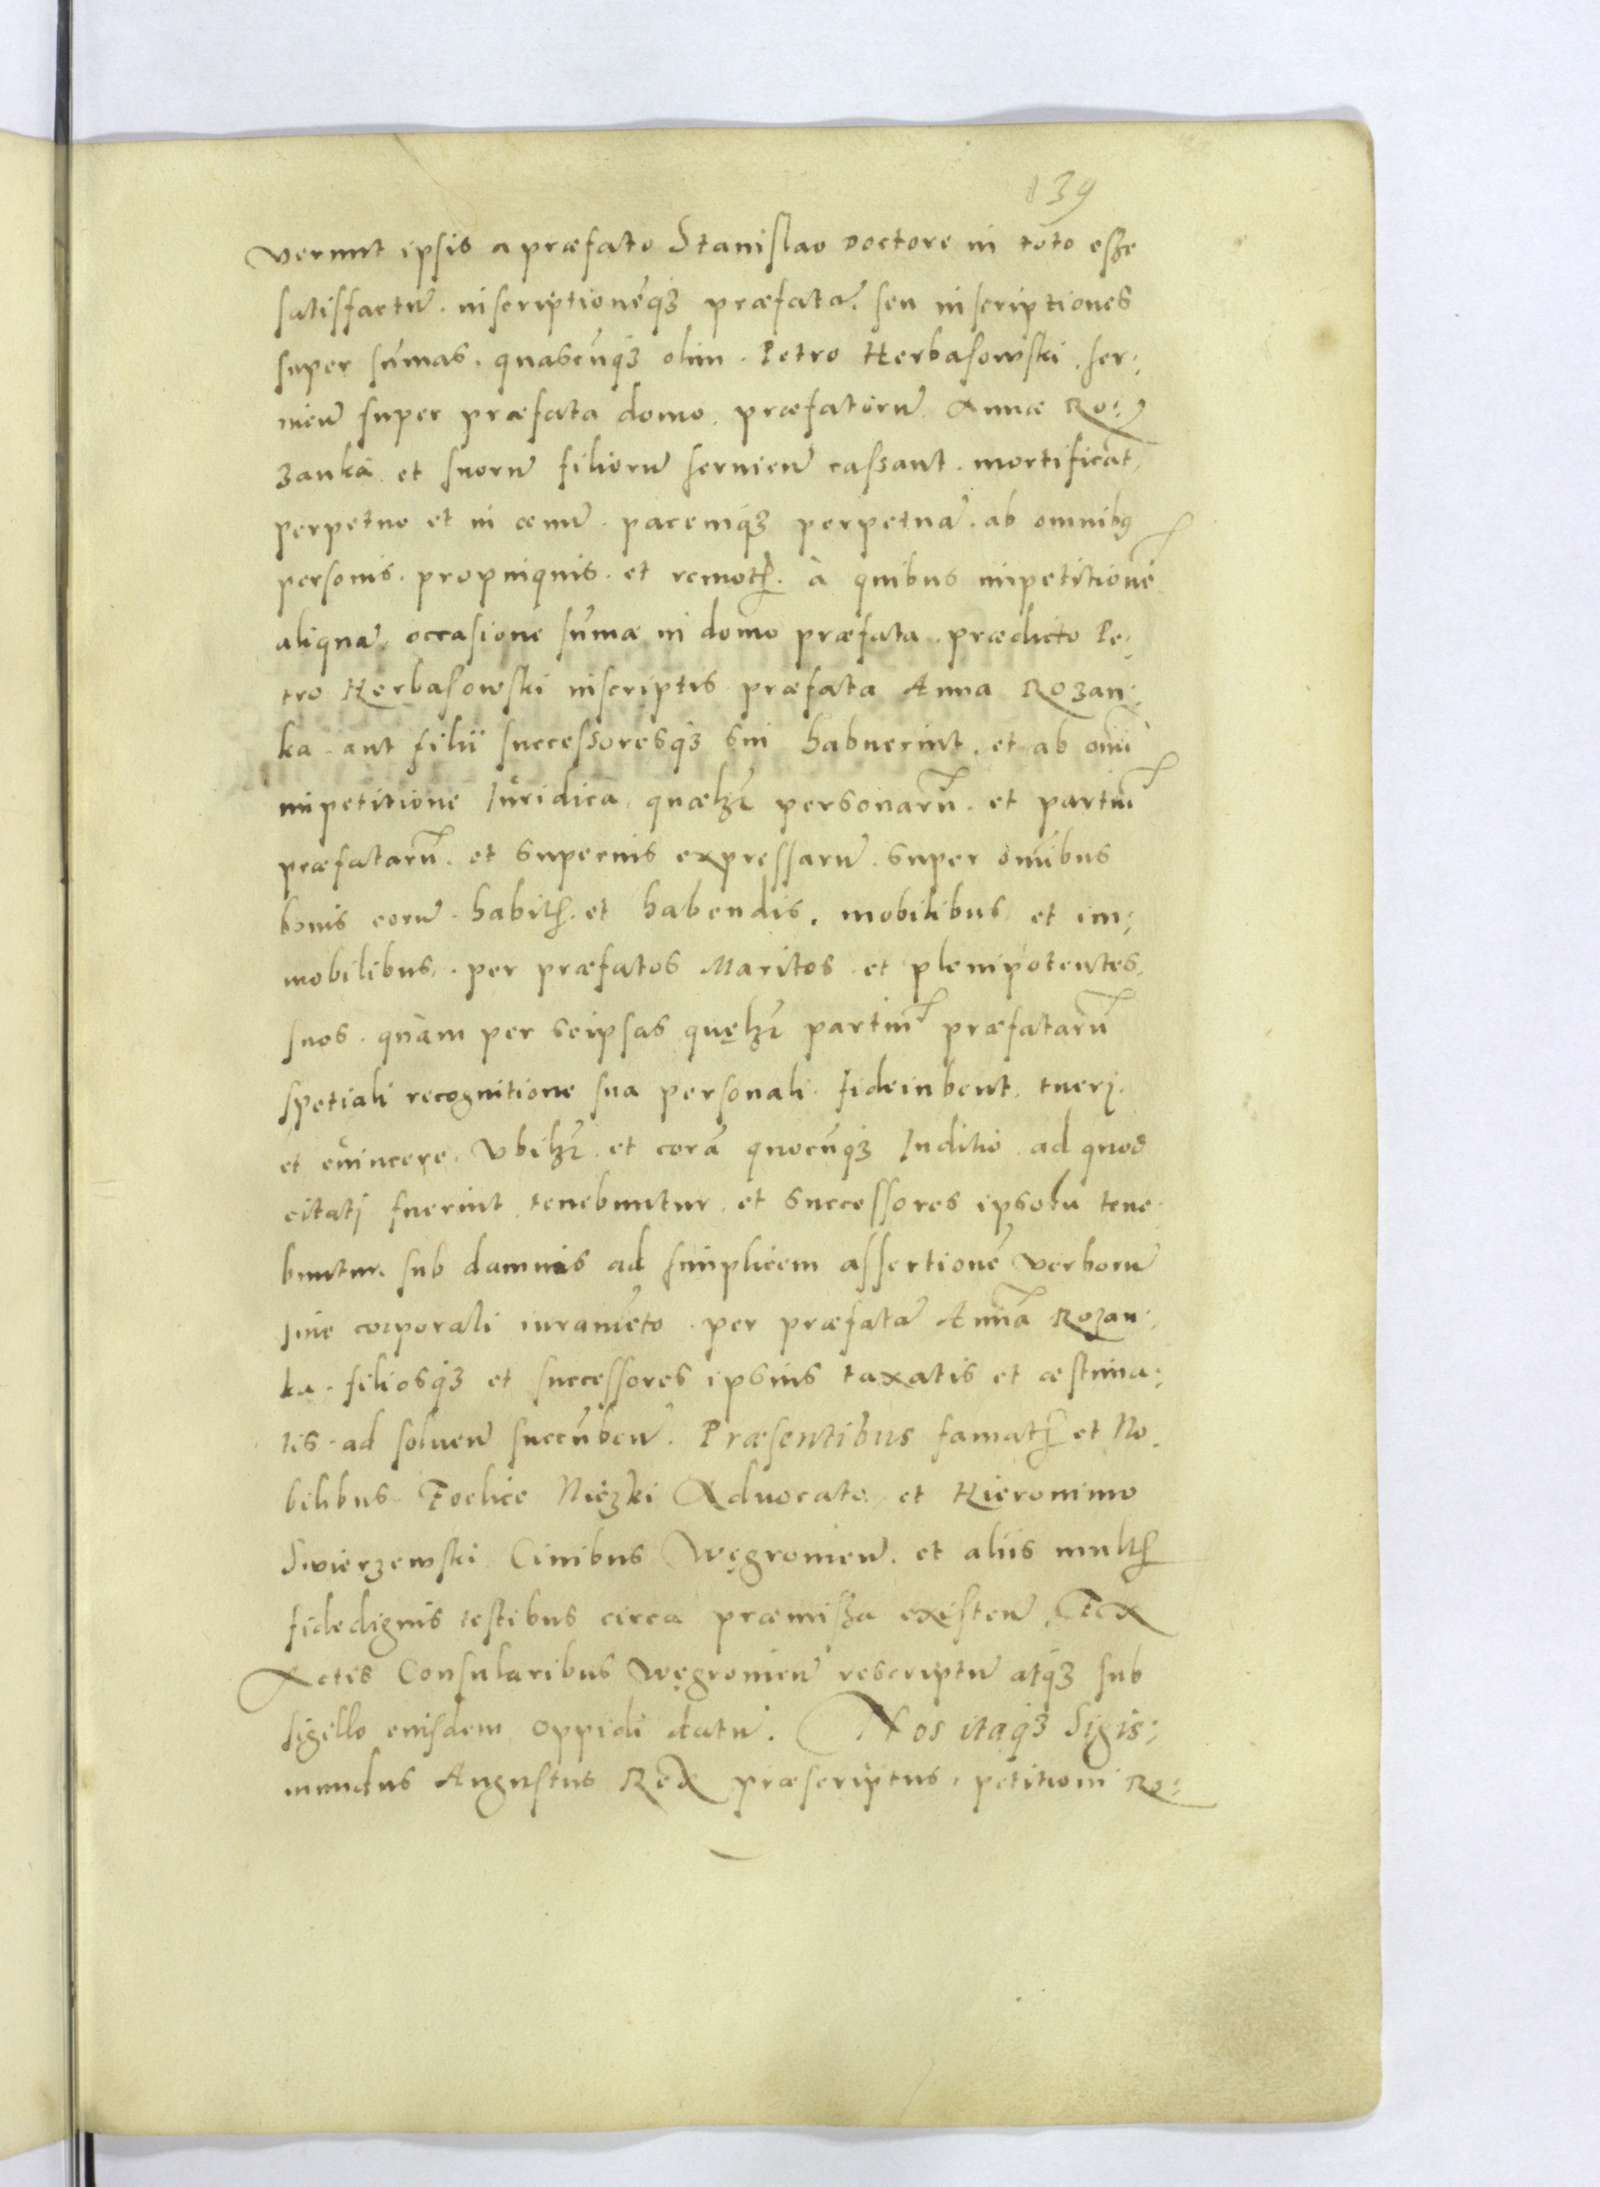 139
verunt ipsis a præfato Stanislao Doctore in toto esse
satisfactũ. inscriptionẽq3 præfatã. seu inscriptiones
super sũmas. quascũq3 olim. Petro Herbasowski. ser:
vieñ super præfata domo. præfatorũ. Annæ Ro:
zanka et suorũ filiorũ servieñ cassant. mortificãt
perpetuo et in ævũ. pacemq3 perpetuã. ab omnibꝰ
personis. propinquis. et remotꝭ. à quibus impetitionẽ
aliquã. occasione sũmæ in domo præfata. prædicto Pe:
tro Herbasowski inscriptis præfata Anna Rozan:
ka. aut filii successoresq3 sui habuerint. et ab omĩ
impetitione Iuridica. quælꝫ personarũ. et partiũ
præfatarũ. et supernis expressarũ. super omĩbus
bonis eorũ. habitꝭ. et habendis. mobilibus et im:
mobilibus. per præfatos Maritos et plenipotentes
suos. quam per seipsas quęlꝫ partiũ præfatarũ
spetiali recognitione sua personali. fideiubent. tueri.
et evincere. Vbilꝫ. et corã quocũq3 Iuditio. ad quod
citati fuerint. tenebuntur. et successores ipsorũ tene
buntur. sub damnis ad simplicem assertionẽ verborũ
sine corporali iuramẽto. per præfatã Annã Rozan:
ka. filiosq3 et successores ipsius taxatis et æstima:
tis. ad solvenũ succũbenũ. Præsentibus famatꝭ et No:
bilibus Foelice Niezki Advocato. et Hieronimo
Swierzewski Civibus Węgrovieñ. et aliis multꝭ
fidedignis testibus circa præmissa existeñ. Et ex
Actis Consularibus Węgrovieñ rescriptũ atq3 sub
sigello eiusdem oppidi datũ. Nos itaq3 Sigis:
mundus Augustus Rex præscriptus, petitioni Ro: